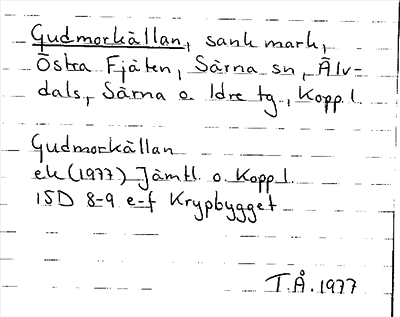 Gudmorkällan, sank mark,
Östra Fjäten, Särna sn, Älv-
dals, Särna o. Idre tg., Kopp. l.
Gudmorkällan
ek (1977) Jämtl. o. Kopp. l.
15D 8-9 e-f Krypbygget
T.Å. 1977